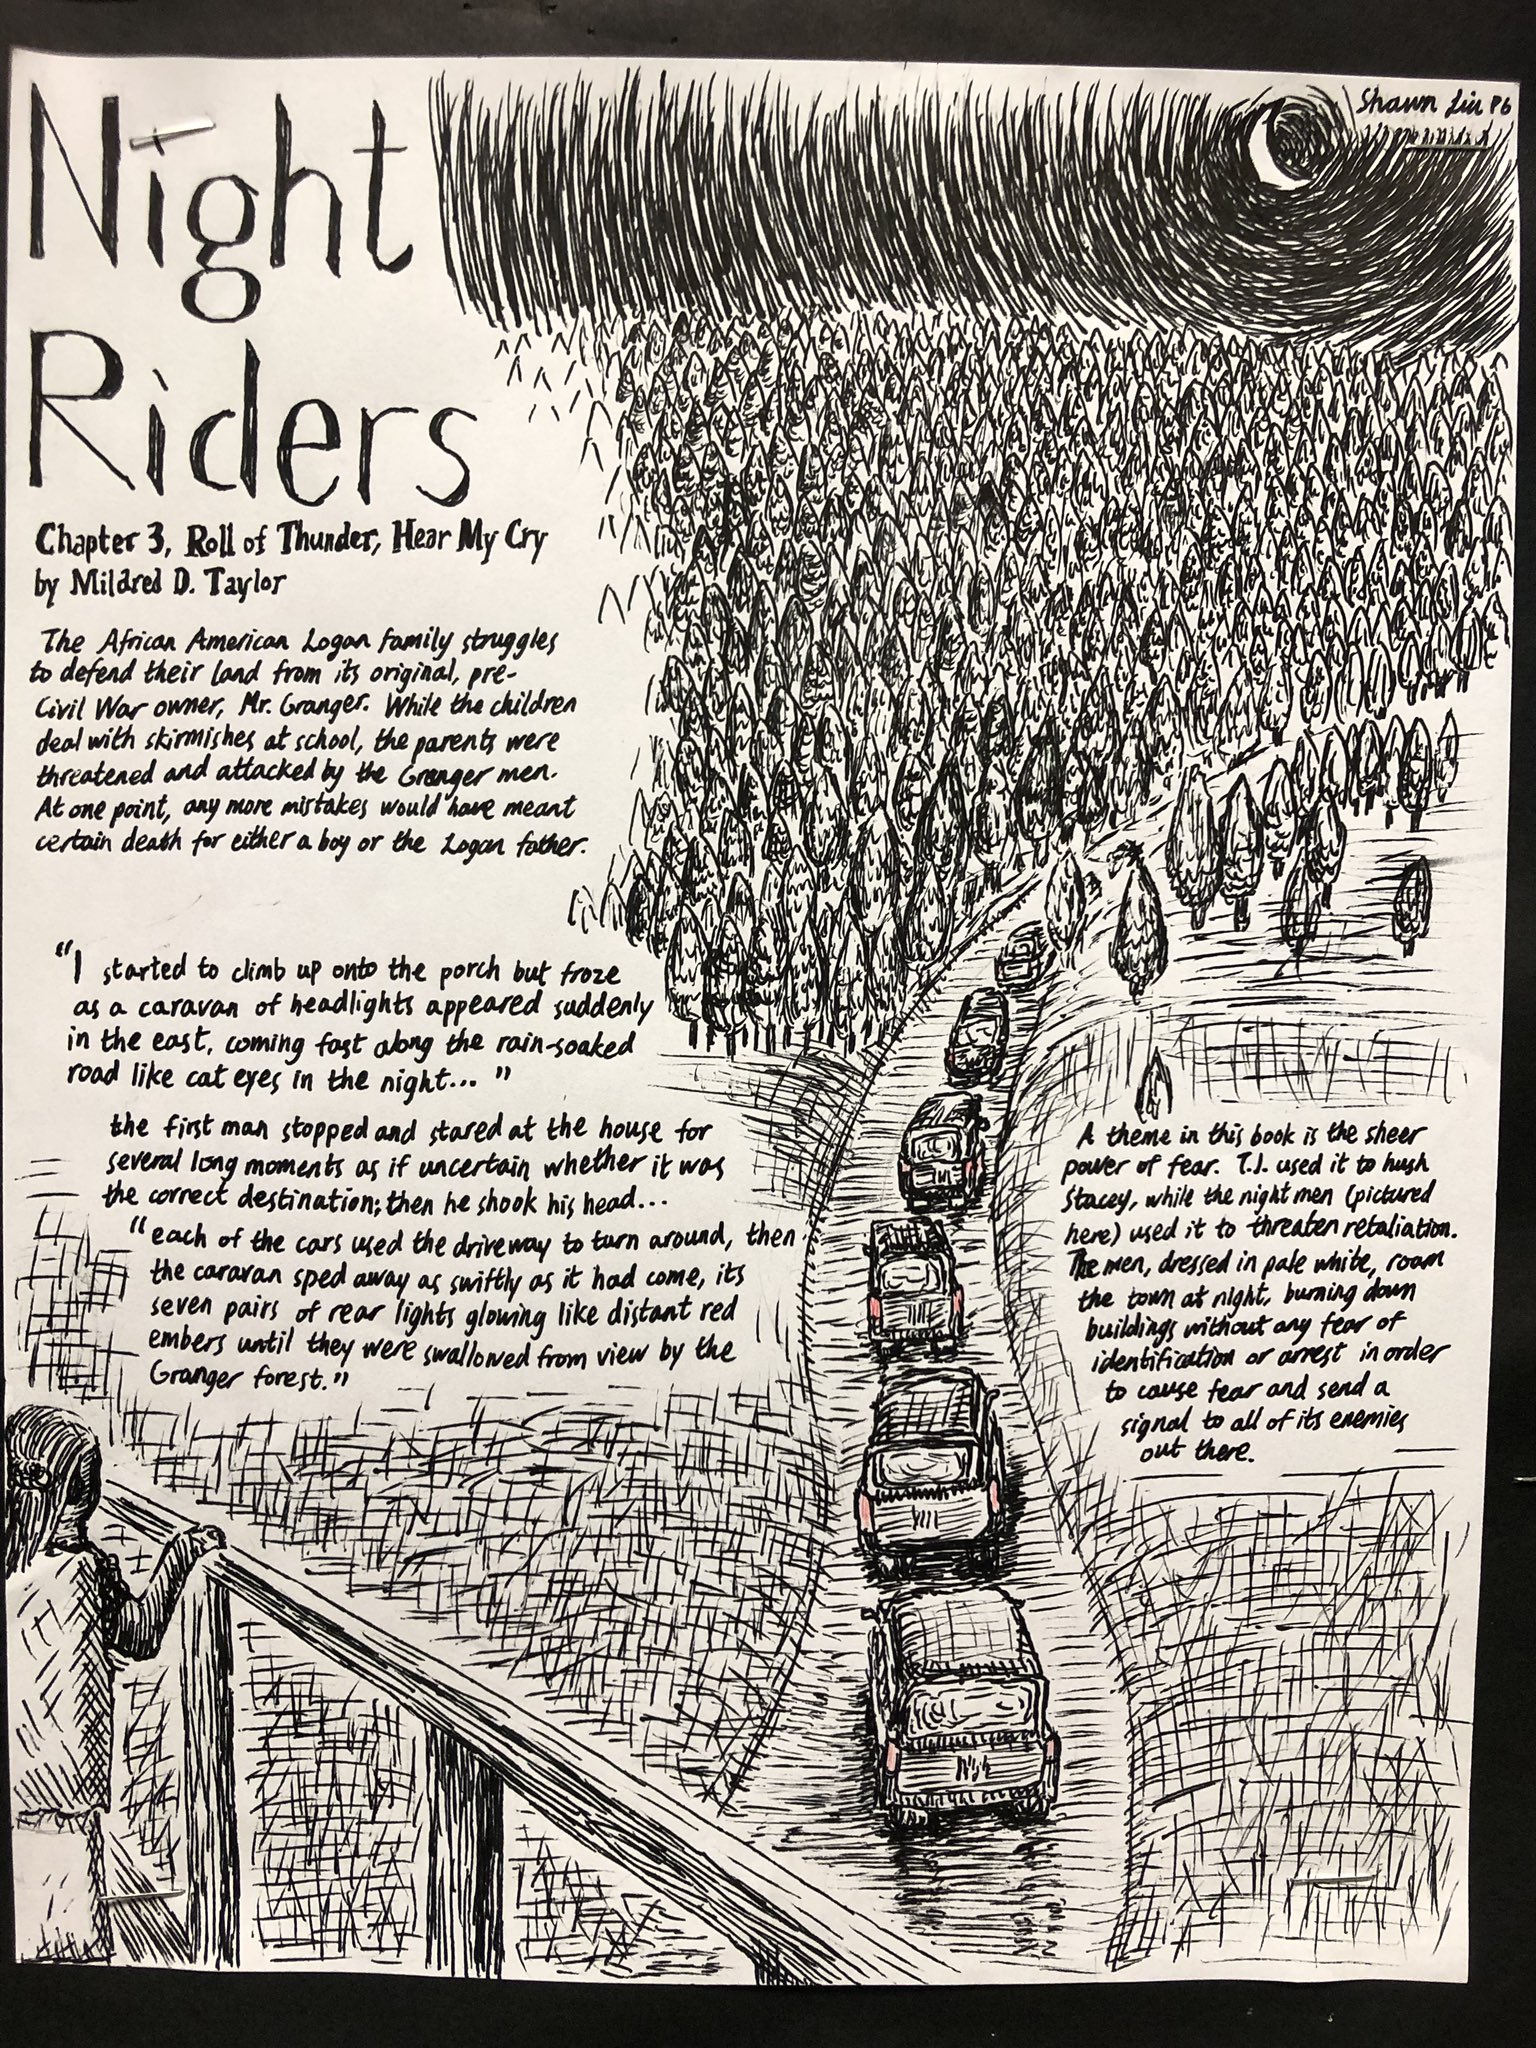 Night
Riders
Shawn Liu P6
Chapter 3, Roll of Thunder, Hear My Cry
by Mildred D. Taylor
The African American Logan family struggles
to defend their land from its original, pre-
Civil War owner, Mr. Granger. While the children
deal with skirmishes at school, the parents were
threatened and attacked by the Granger men.
At one point, any more mistakes would have meant
certain death for either a boy or the Logan father.
"I started to climb up onto the porch but froze
as a caravan of headlights appeared suddenly
in the east, coming fast along the rain-soaked
road like cat eyes in the night... "
the first man stopped and stared at the house for
several long moments as if uncertain whether it was
the correct destination; then he shook his head...
"each of the cars used the driveway to turn around, then
the caravan sped away as swiftly as it had come, its
seven pairs of rear lights glowing like distant red
embers until they were swallowed from view by the
Granger forest."
A theme in this book is the sheer
power of fear. T.J. used it to hush
Stacey, while the night men (pictured
here) used it to threaten retaliation.
The men, dressed in pale white, roam
the town at night, burning down
buildings without any fear of
identification or arrest in order
to cause fear and send a
signal to all of its enemies
out there.